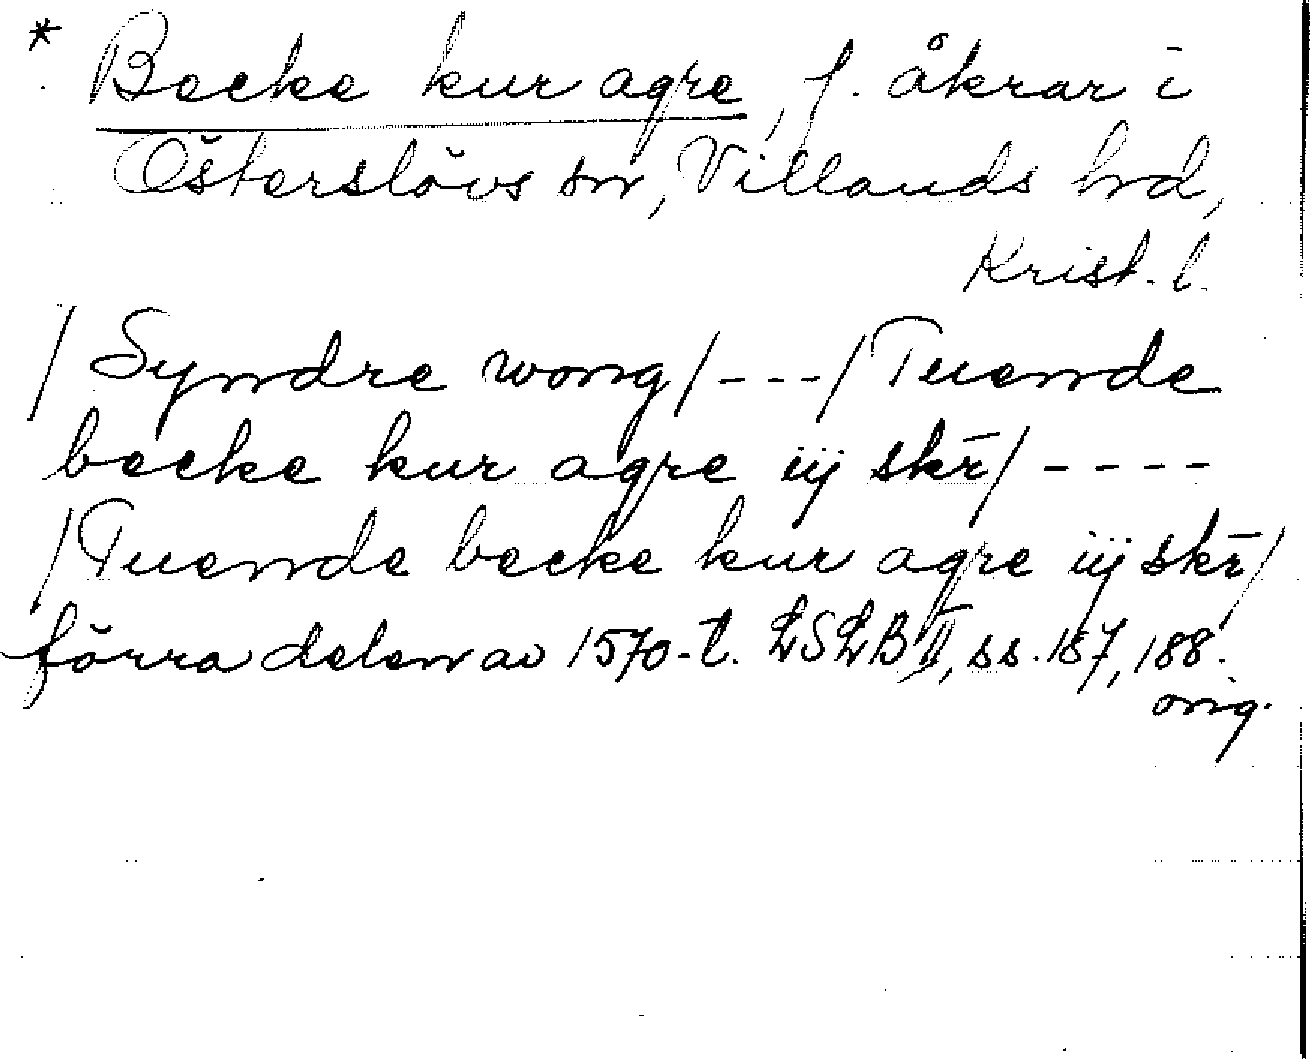 * Becke kur agre, f. åkrar i
Österslövs sn, Villands hd,
Krist. l.
/Syndre wong/---/Tuende
becke kur agre iij skr̄/----
/Tuende becke kur agre iij skr̄/
förra delen av 1570-t. LSLB II, ss. 187, 188.
orig.